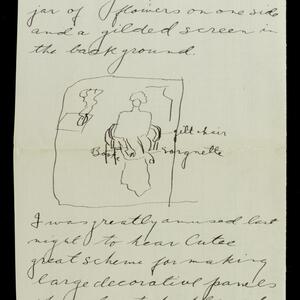 jar of flowers on one side
and a gilded screen in
the background.
gilt chair
Book
lorgnette
I was greatly amused last
night to hear Cutee
great scheme for making
large decorative panels